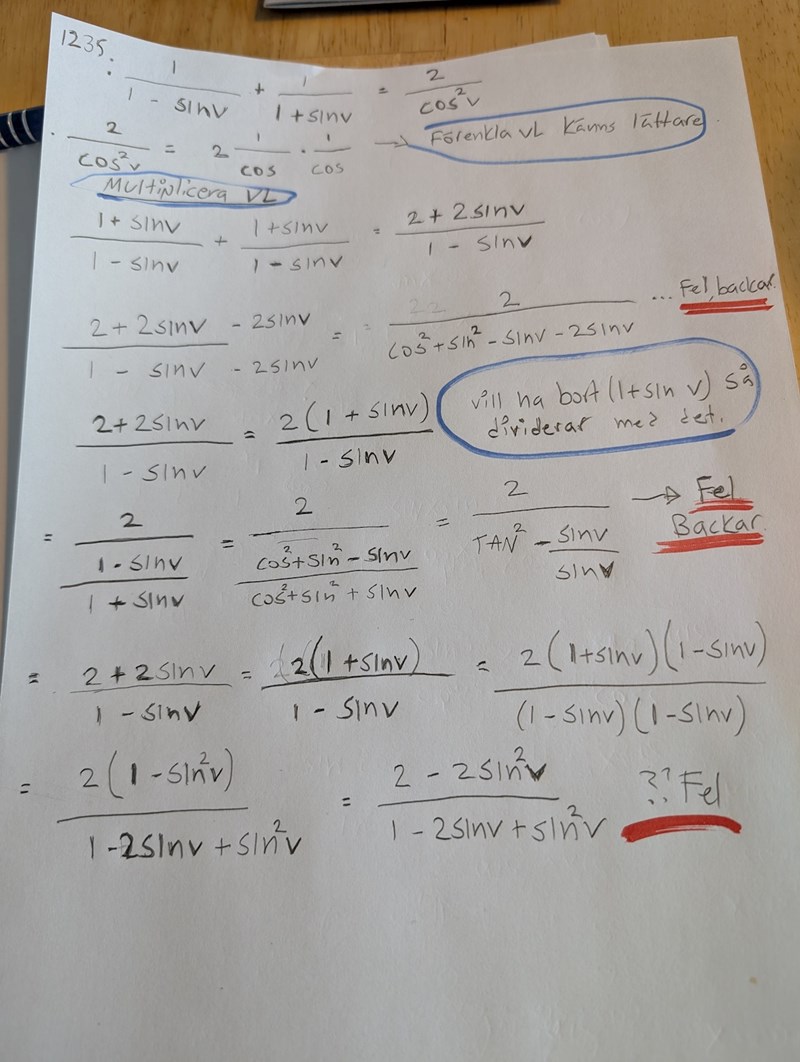 1235: 1/(1 - sinv) + 1/(1 + sinv) = 2/cos²v
2/cos²v = 2 1/cos · 1/cos → Förenkla VL känns lättare
Multiplicera VL
(1 + sinv)/(1 - sinv) + (1+sinv)/(1 - sinv) = (2 + 2sinv)/(1 - sinv)
(2 + 2sinv - 2sinv)/(1 - sinv - 2sinv) = 2/(cos² + sin² - sinv - 2sinv) ... Fel, backar.
(2+2sinv)/(1 - sinv) = 2(1 + sinv)/(1 - sinv) vill ha bort (1+sin v) så
dividerar med det.
= 2/((1 - sinv)/(1 + sinv)) = 2/((cos²+sin² - sinv)/(cos²+sin² + sinv)) = 2/(TAN² - sinv/sinv) → Fel
Backar.
= (2 + 2sinv)/(1 - sinv) = 2(1 + sinv)/(1 - sinv) = 2(1+sinv)(1-sinv)/((1 - sinv)(1 - sinv))
= 2(1 - sin²v)/(1 - 2sinv + sin²v) = (2 - 2sin²v)/(1 - 2sinv + sin²v) ?? Fel